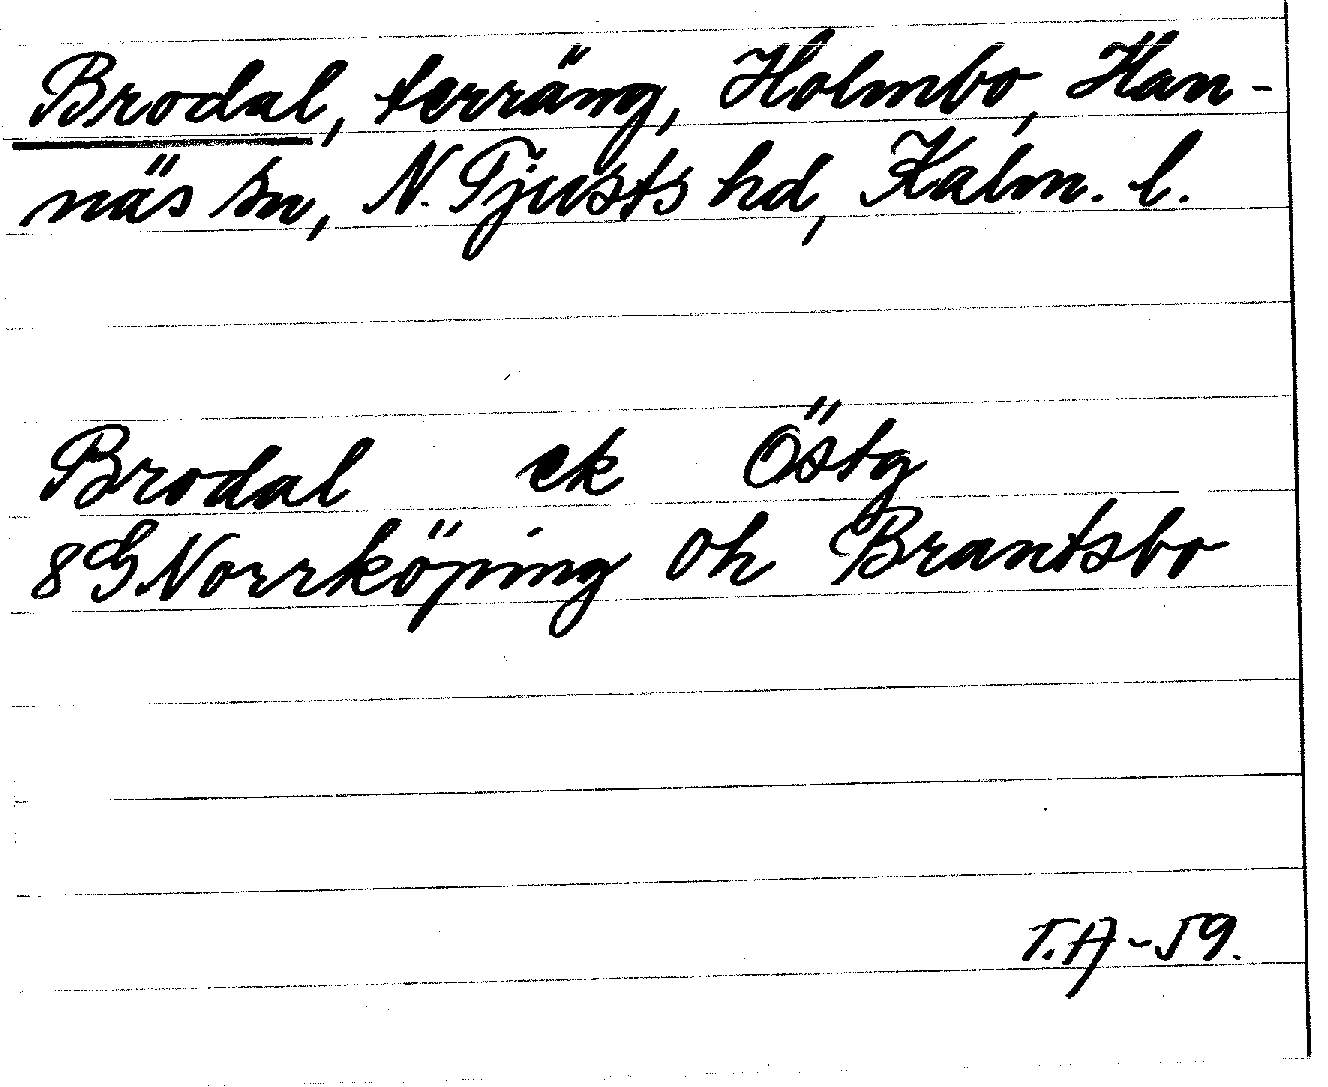 Brodal, terräng, Holmbo, Han-
näs sn, N. Tjusts hd, Kalm. l.
Brodal ek Östg
8G Norrköping Oh Brantsbo
T.A-59.